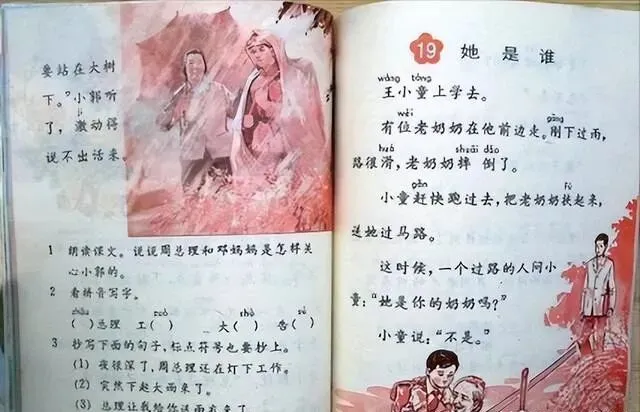 要站在大树
下。"小郭听
jī
了，激动得
说不出话来。
1 朗读课文。说说周总理和邓妈妈是怎样关
心小郭的。
2 看拼音写字。
zhōu zuò shù sù
( )总理 工( ) 大( ) 告( )
3 抄写下面的句子，标点符号也要抄上。
(1) 夜很深了，周总理还在灯下工作。
(2) 突然下起大雨来了。
(3) 总理让我给你送雨衣来了。
19 她是谁
wáng tóng
王小童上学去。
wèi gāng
有位老奶奶在他前边走。刚下过雨，
huá shuāi dǎo
路很滑，老奶奶摔倒了。
gǎn fú
小童赶快跑过去，把老奶奶扶起来，
送她过马路。
这时候，一个过路的人问小
童："她是你的奶奶吗？"
小童说："不是。"